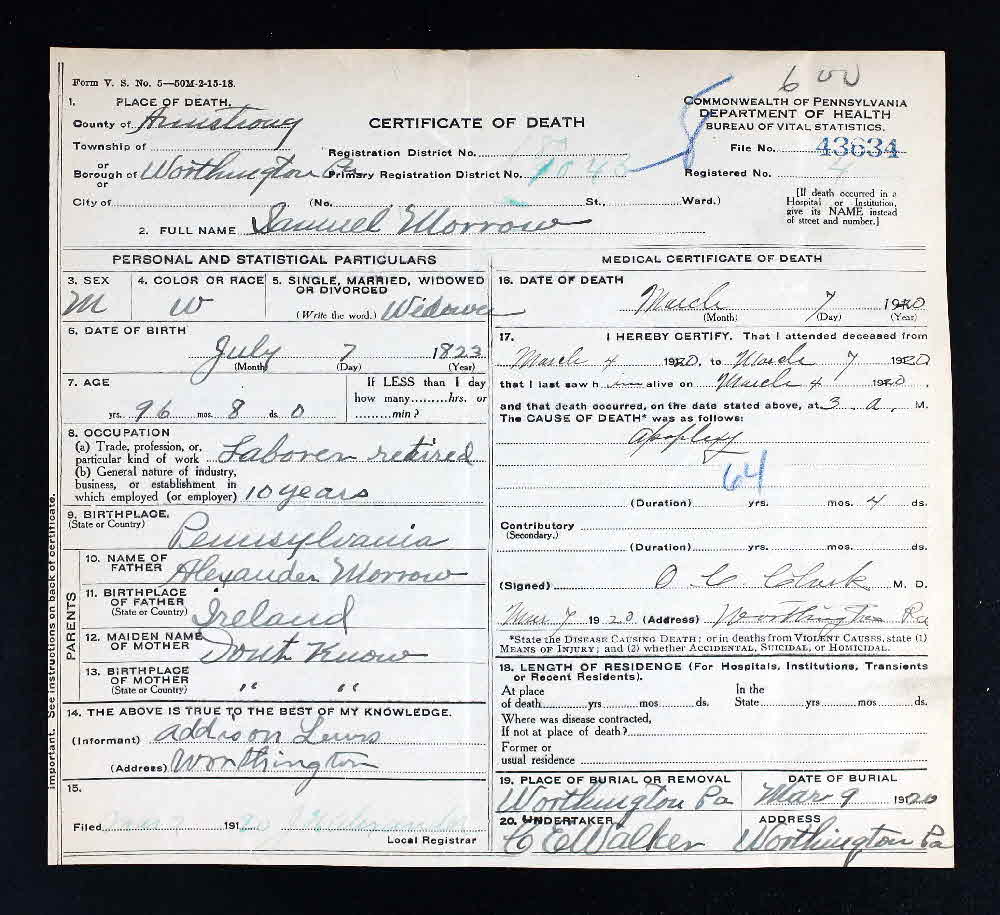 Form V. S. No. 5—50M-2-15-18.
6 00
1. PLACE OF DEATH.
County of Armstrong
Township of
or
Borough of Worthington Pa
or
City of
CERTIFICATE OF DEATH
8
COMMONWEALTH OF PENNSYLVANIA
DEPARTMENT OF HEALTH
BUREAU OF VITAL STATISTICS.
Registration District No.
File No. 43634
Primary Registration District No. 1043
Registered No.
(No. St., Ward.)
[If death occurred in a
Hospital or Institution,
give its NAME instead
of street and number.]
2. FULL NAME Samuel Morrow
PERSONAL AND STATISTICAL PARTICULARS
3. SEX
M
4. COLOR OR RACE
W
5. SINGLE, MARRIED, WIDOWED
OR DIVORCED
(Write the word.) Widower
6. DATE OF BIRTH
July 7 1823
(Month) (Day) (Year)
7. AGE
yrs. 96 mos. 8 ds. 0
If LESS than 1 day
how many hrs. or
min?
8. OCCUPATION
(a) Trade, profession, or
particular kind of work Laborer retired
(b) General nature of industry,
business, or establishment in
which employed (or employer) 10 years
9. BIRTHPLACE.
(State or Country)
Pennsylvania
PARENTS
10. NAME OF
FATHER
Alexander Morrow
11. BIRTHPLACE
OF FATHER
(State or Country)
Ireland
12. MAIDEN NAME
OF MOTHER
Dont Know
13. BIRTHPLACE
OF MOTHER
(State or Country)
" "
14. THE ABOVE IS TRUE TO THE BEST OF MY KNOWLEDGE.
(Informant) Addison Lewis
(Address) Worthington
15.
Filed Mar 7 1920
Local Registrar
important. See instructions on back of certificate.
MEDICAL CERTIFICATE OF DEATH
16. DATE OF DEATH
March 7 1920
(Month) (Day) (Year)
17. I HEREBY CERTIFY. That I attended deceased from
March 4 1920, to March 7 1920
that I last saw h im alive on March 4 1920,
and that death occurred, on the date stated above, at 3 a. M.
The CAUSE OF DEATH* was as follows:
Apoplexy
64
(Duration) yrs. mos. 4 ds.
Contributory
(Secondary.)
(Duration) yrs. mos. ds.
(Signed) O C Clark M. D.
Mar 7 1920 (Address) Worthington Pa
*State the DISEASE CAUSING DEATH; or in deaths from VIOLENT CAUSES, state (1)
MEANS OF INJURY; and (2) whether ACCIDENTAL, SUICIDAL, or HOMICIDAL.
18. LENGTH OF RESIDENCE (For Hospitals, Institutions, Transients
or Recent Residents).
At place
of death yrs mos ds.
In the
State yrs mos ds.
Where was disease contracted,
If not at place of death?
Former or
usual residence
19. PLACE OF BURIAL OR REMOVAL
Worthington Pa
DATE OF BURIAL
Mar 9 1920
20. UNDERTAKER
C E Walker
ADDRESS
Worthington Pa